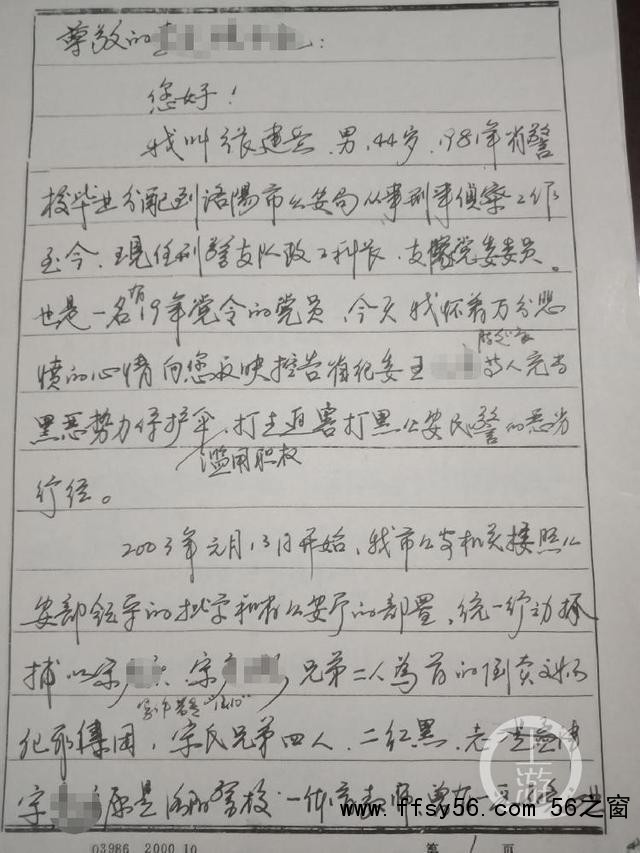 尊敬的
:
您好!
我叫张建 男、44岁、1981年省警
校毕业分配到洛陽市公安局从事刑事侦察工作
至今、現任刑警支队政工科长、支隊党委委员。
也是一名有19年党令的党员、今天我怀着万分悲
愤的心情向您反映控告省纪委王 等人充当
黑恶势力保护伞、滥用职权打击迫害打黑公安民警的恶劣
行径。
2003年元月13日开始,我市公安机关按照公
安部领导的批示和省公安厅的部署,统一行动抓
捕以宋 宋 兄弟二人為首的倒卖文物
犯罪集团,宋氏兄弟四人、二红黑、老
宋 原是洛阳警校一体育教师
www.ffsy56.com 56之窗
上游
03986 2000.10
第 1